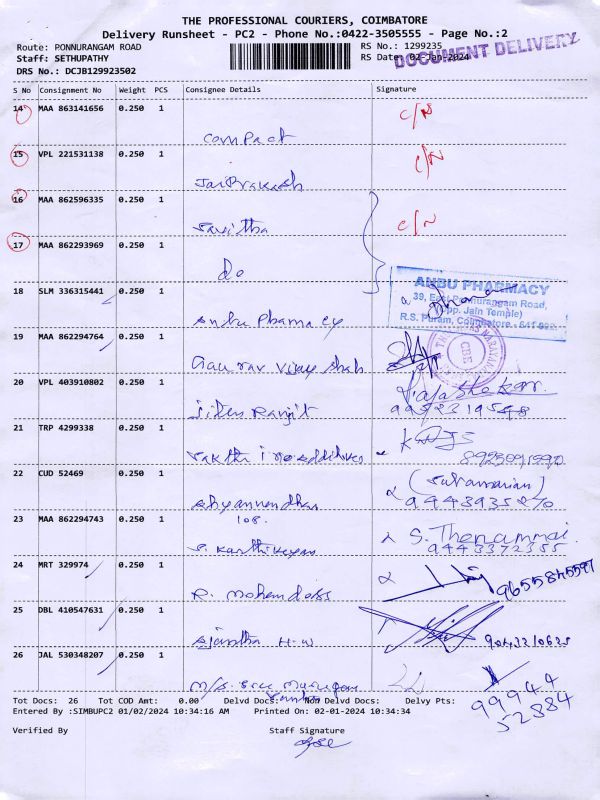 THE PROFESSIONAL COURIERS, COIMBATORE
Delivery Runsheet - PC2 - Phone No.:0422-3505555 - Page No.:2
Route: PONNURANGAM ROAD RS No.: 1299235
Staff: SETHUPATHY RS Date: 02-Jan-2024
DOCUMENT DELIVERY
DRS No.: DCJB129923502
S No Consignment No Weight PCS Consignee Details Signature
14 MAA 863141656 0.250 1 C/N
compact
15 VPL 221531138 0.250 1 C/N
Jai Prakash
16 MAA 862596335 0.250 1 C/N
Savitha
17 MAA 862293969 0.250 1
do
18 SLM 336315441 0.250 1
Anbu Pharmacy
ANBU PHARMACY
39, East Ponnurangam Road,
(Opp. Jain Temple)
R.S. Puram, Coimbatore - 641 002
19 MAA 862294764 0.250 1
Gaurav Vijay Shah
CBE
20 VPL 403910802 0.250 1 Rajashekar
Jiten Ranjit
21 TRP 4299338 0.250 1
Sakthi
22 CUD 52469 0.250 1 (Subramanian)
9443935270
108.
23 MAA 862294743 0.250 1 S. Thenammai
S. Karthikeyan 9443372355
24 MRT 329974 0.250 1
R. Mohandoss 9655845597
25 DBL 410547631 0.250 1
Ajantha H.W 9043210625
26 JAL 530348207 0.250 1
M/S. Sree Murugan 99944
52884
Tot Docs: 26 Tot COD Amt: 0.00 Delvd Docs: Non Delvd Docs: Delvy Pts:
Entered By :SIMBUPC2 01/02/2024 10:34:16 AM Printed On: 02-01-2024 10:34:34
Verified By Staff Signature